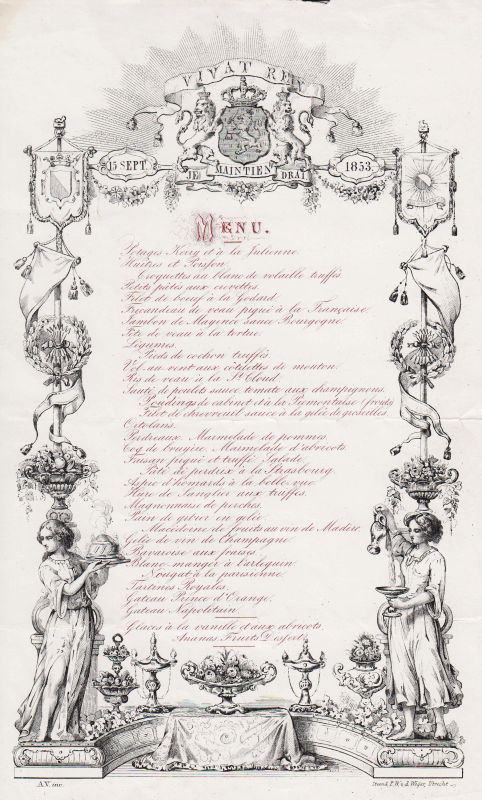 VIVAT REX
15 SEPT.
1853.
JE MAINTIEN DRAI
MENU.
Potages Kerry et à la Julienne.
Huîtres et Poisson.
Croquettes au blanc de volaille truffés.
Petits pâtés aux crevettes.
Filet de boeuf à la Godard.
Fricandeau de veau piqué à la Française.
Jambon de Mayence sauce Bourgogne.
Tête de veau à la tortue.
Légumes.
Pieds de cochon truffés.
Vol au vent aux côtelettes de mouton.
Ris de veau à la St. Cloud.
Sauté de poulets sauce tomate aux champignons.
Poudings de cabinet et à la Piemontaise (froids)
Filet de chevreuil sauce à la gelée de groseilles.
Ortolans.
Perdreaux. Marmelade de pommes.
Coq de bruyère. Marmelade d'abricots.
Faisan piqué et truffé. Salade.
Pâté de perdrix à la Strasbourg.
Aspic d'homards à la belle vue.
Hure de Sanglier aux truffes.
Magnonnaise de perches.
Pain de gibier en gelée.
Macédoine de fruits au vin de Madère.
Gelée de vin de Champagne.
Bavaroise aux fraises.
Blanc manger à l'arlequin.
Nougat à la parisienne.
Tartines Royales.
Gateau Prince d'Orange.
Gateau Napolitain.
Glaces à la vanille et aux abricots.
Ananas Fruits Desserts.
A.V. inv.
Utrecht